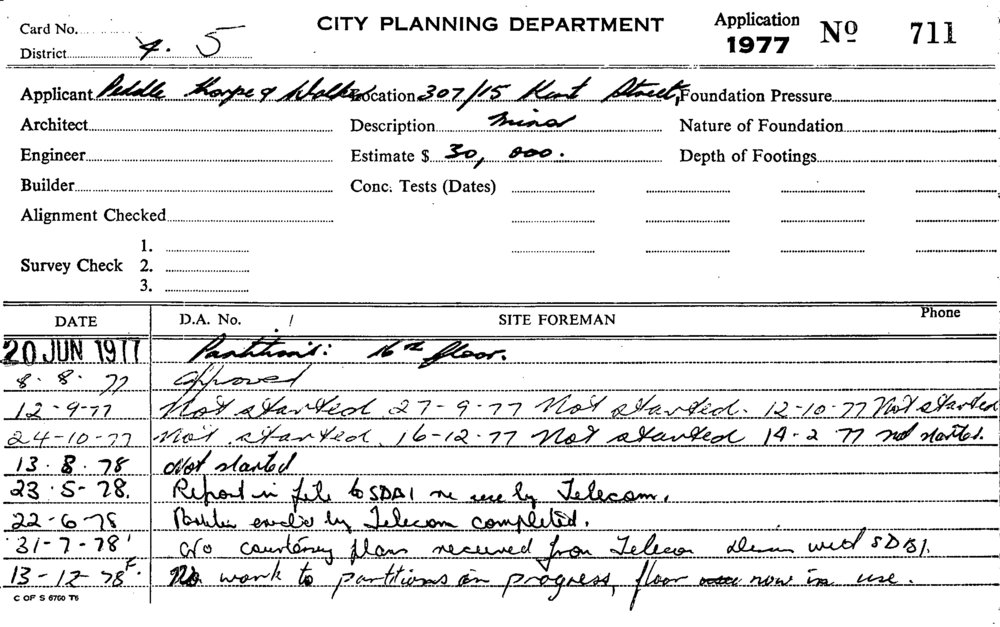 Card No. CITY PLANNING DEPARTMENT Application 1977 Nº 711
District 4. 5
Applicant Peddle Thorpe & Walker Location 307/15 Kent Street, Foundation Pressure
Architect Description minor Nature of Foundation
Engineer Estimate $ 30,000. Depth of Footings
Builder Conc. Tests (Dates)
Alignment Checked
1.
Survey Check 2.
3.
DATE D.A. No. / SITE FOREMAN Phone
20 JUN 1977 Partitions: 16th floor.
8. 8. 77 approved
12-9-77 Not started 27-9-77 Not started. 12-10-77 Not started
24-10-77 Not started. 16-12-77 Not started 14-2 77 not started.
13. 8. 78 Not started
23-5-78. Report in file to SDBI re use by Telecom.
22-6-78 by Telecom completed.
31-7-78 c/o courtney plans received from Telecom with SDBI.
13-12-78 F. No work to partitions in progress, floor now in use.
C OF S 6760 T6